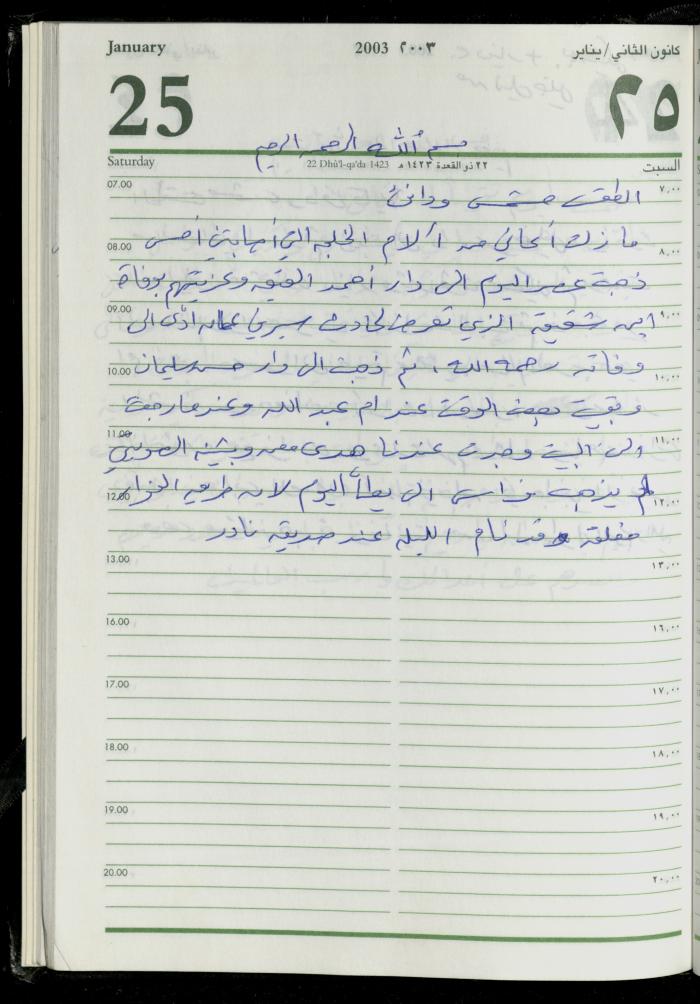 January 2003 ٢٠٠٣ كانون الثاني/يناير
25 ٢٥
بسم الله الرحمن الرحيم
Saturday 22 Dhū'l-qa'da 1423 ٢٢ ذو القعدة ١٤٢٣ هـ السبت
07.00 ٧,٠٠
الطقس مشمس ودافئ
ما زلت أعاني من آلام الخلجه التي أصابتني أمس
08.00 ٨,٠٠
ذهبت عصر اليوم الى دار أحمد الفقيه وعزيتهم بوفاة
09.00 ٩,٠٠
ابن شقيقه الذي تعرض لحادث سير في عمان أدى الى
وفاته رحمه الله ، ثم ذهبت الى دار حسن سليمان
10.00 ١٠,٠٠
وبقيت بعض الوقت عند ام عبد الله وعندما رجعت
11.00 ١١,٠٠
الى البيت وجدت عندنا هدى معن وبثينه
لم يذهب فراس الى يطأ اليوم لان طريق الفوار
12.00 ١٢,٠٠
مغلقة وقد نام الليله عند صديقه نادر
13.00 ١٣,٠٠
16.00 ١٦,٠٠
17.00 ١٧,٠٠
18.00 ١٨,٠٠
19.00 ١٩,٠٠
20.00 ٢٠,٠٠